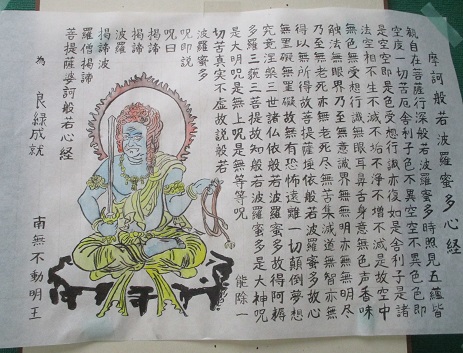 摩訶般若波羅蜜多心経
観自在菩薩行深般若波羅蜜多時照見五蘊皆
空度一切苦厄舎利子色不異空空不異色色即
是空空即是色受想行識亦復如是舎利子是諸
法空相不生不滅不垢不浄不増不減是故空中
無色無受想行識無眼耳鼻舌身意無色声香味
触法無眼界乃至無意識界無無明亦無無明尽
乃至無老死亦無老死尽無苦集滅道無智亦無
得以無所得故菩提薩埵依般若波羅蜜多故心
無罣礙無罣礙故無有恐怖遠離一切顛倒夢想
究竟涅槃三世諸仏依般若波羅蜜多故得阿耨
多羅三藐三菩提故知般若波羅蜜多是大神呪
是大明呪是無上呪是無等等呪 能除一
切苦真実不虚故説般若
波羅蜜多
呪即説
呪曰
掲諦
掲諦
波羅
掲諦波
羅僧掲諦
菩提薩婆訶般若心経
為 良縁成就
南無不動明王